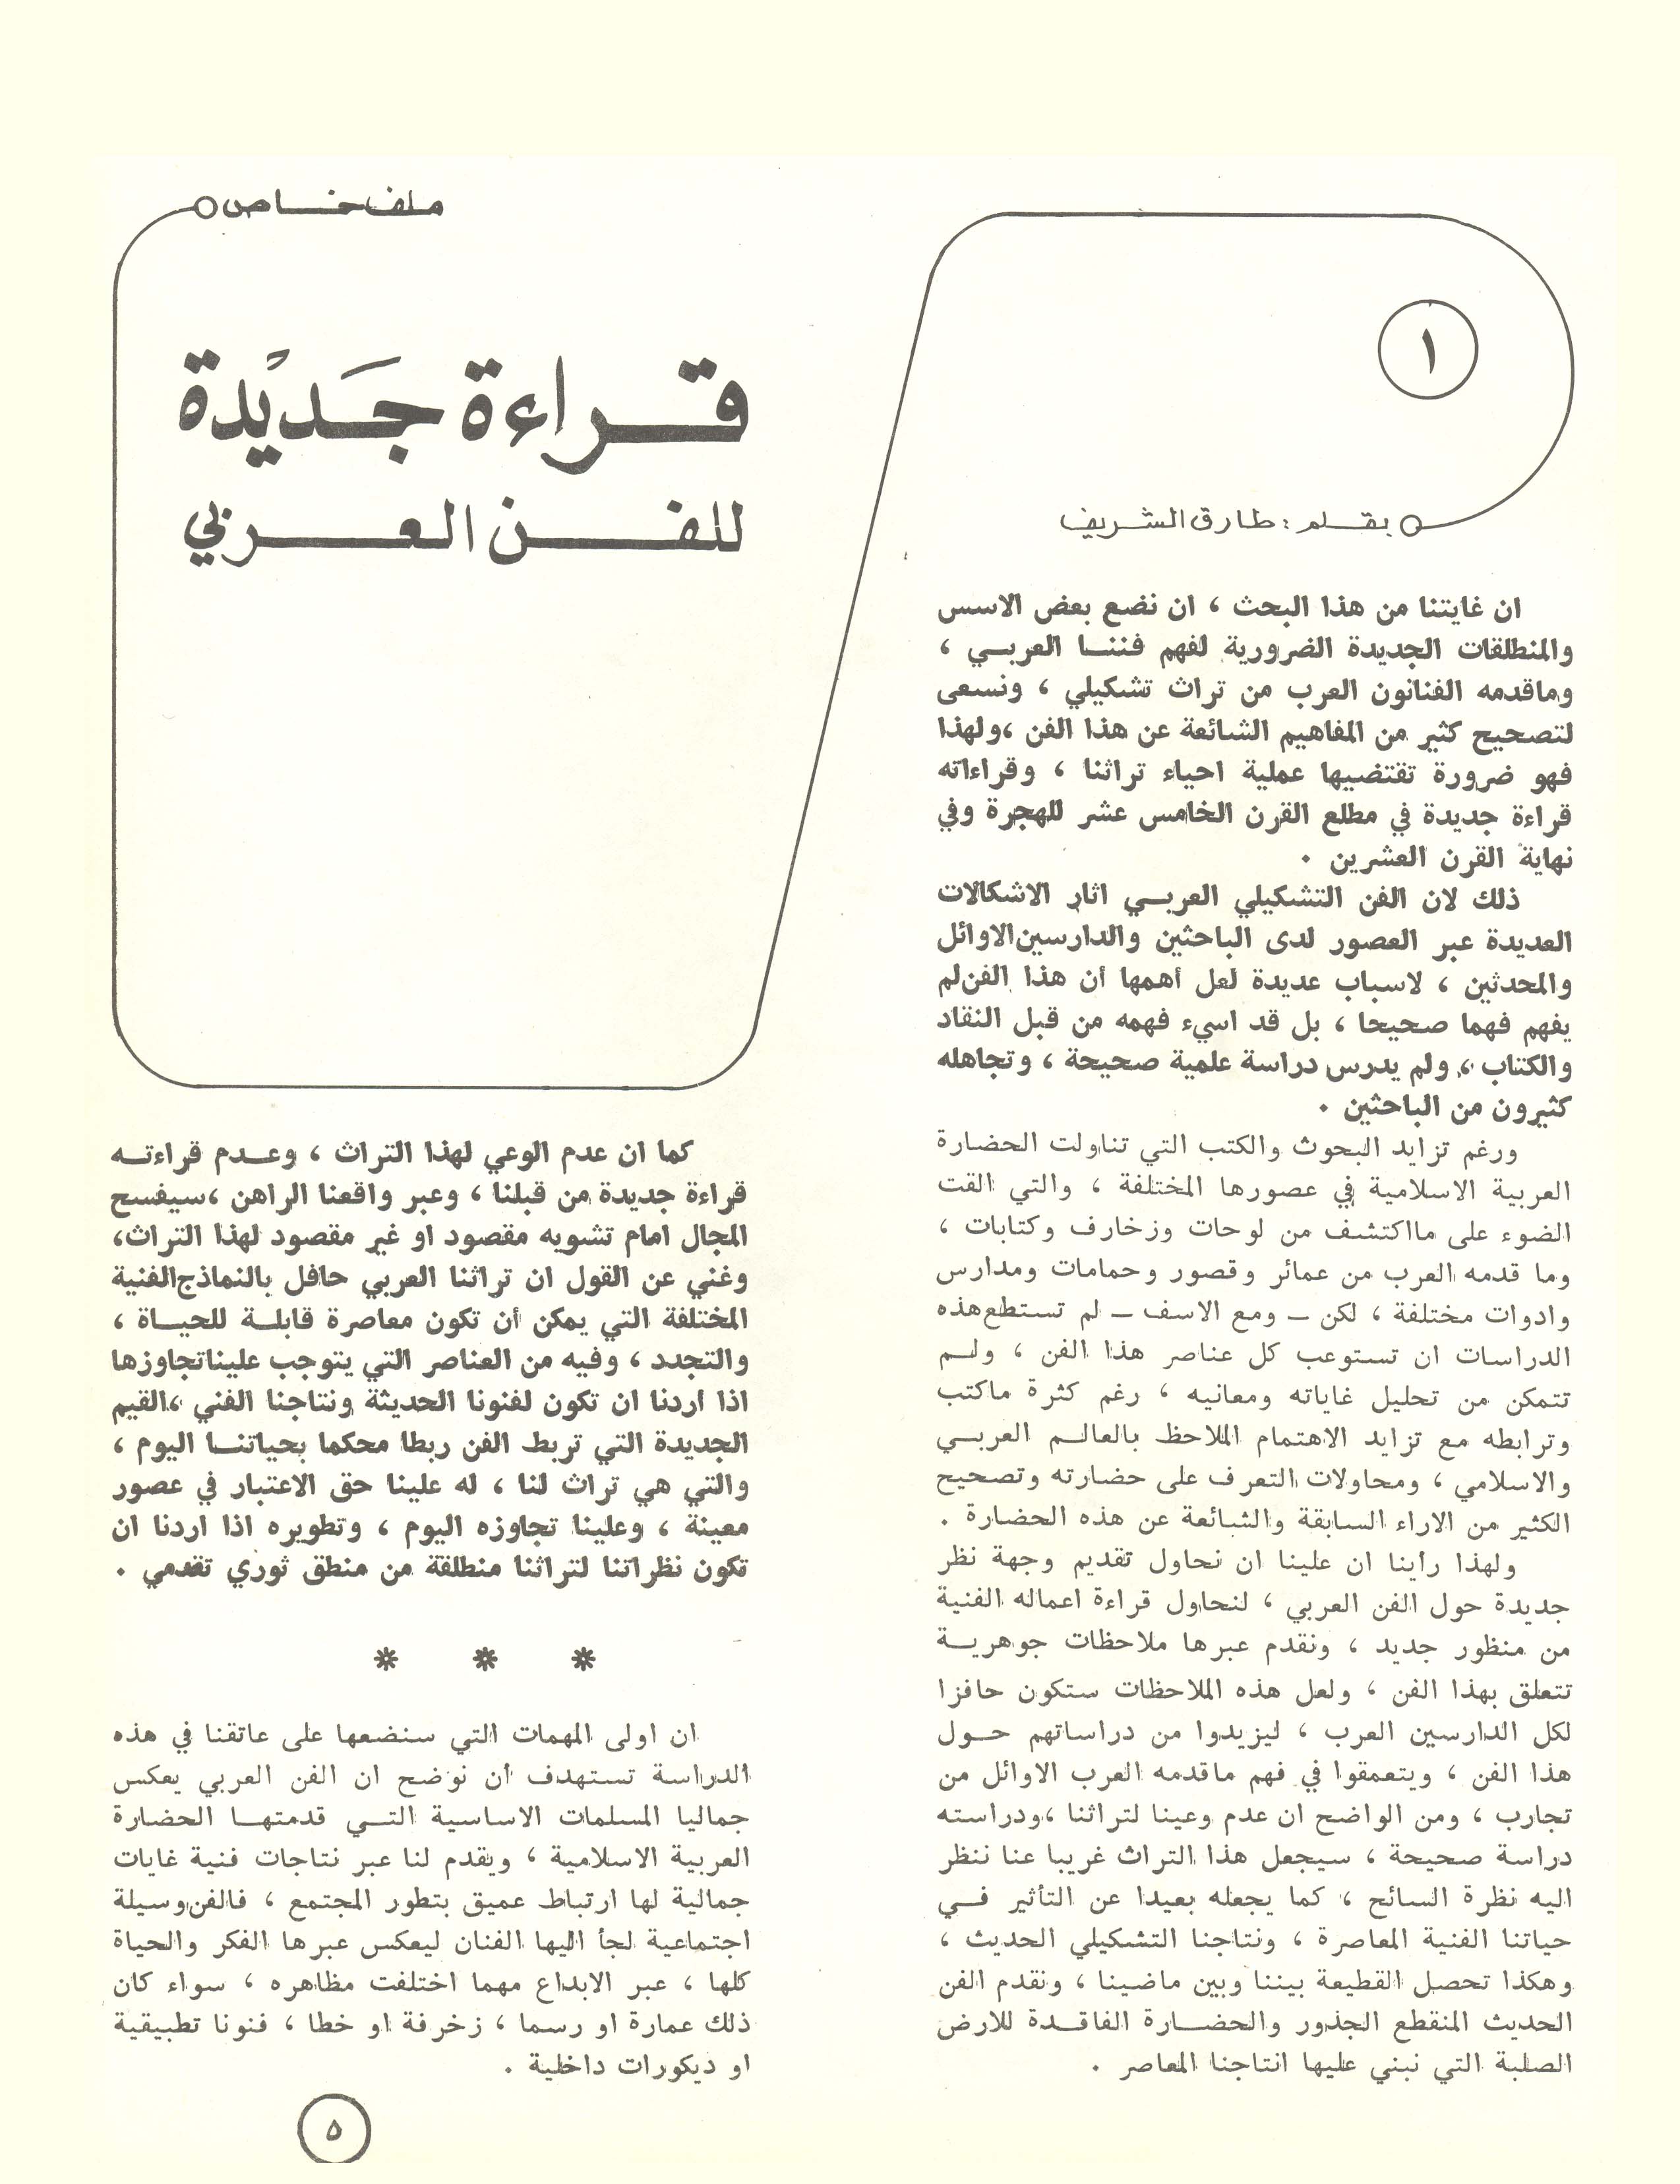 ملف خاص
قراءة جديدة
للفن العربي
١
بقلم : طارق الشريف
ان غايتنا من هذا البحث ، ان نضع بعض الاسس
والمنطلقات الجديدة الضرورية لفهم فننا العربي ،
وماقدمه الفنانون العرب من تراث تشكيلي ، ونسعى
لتصحيح كثير من المفاهيم الشائعة عن هذا الفن ،ولهذا
فهو ضرورة تقتضيها عملية احياء تراثنا ، وقراءاته
قراءة جديدة في مطلع القرن الخامس عشر للهجرة وفي
نهاية القرن العشرين .
ذلك لان الفن التشكيلي العربي اثار الاشكالات
العديدة عبر العصور لدى الباحثين والدارسين الاوائل
والمحدثين ، لاسباب عديدة لعل أهمها ان هذا الفن لم
يفهم فهما صحيحا ، بل قد اسيء فهمه من قبل النقاد
والكتاب ، ولم يدرس دراسة علمية صحيحة ، وتجاهله
كثيرون من الباحثين .
ورغم تزايد البحوث والكتب التي تناولت الحضارة
العربية الاسلامية في عصورها المختلفة ، والتي القت
الضوء على مااكتشف من لوحات وزخارف وكتابات ،
وما قدمه العرب من عمائر وقصور وحمامات ومدارس
وادوات مختلفة ، لكن – ومع الاسف – لم تستطع هذه
الدراسات ان تستوعب كل عناصر هذا الفن ، ولم
تتمكن من تحليل غاياته ومعانيه ، رغم كثرة ماكتب
وترابطه مع تزايد الاهتمام الملاحظ بالعالم العربي
والاسلامي ، ومحاولات التعرف على حضارته وتصحيح
الكثير من الاراء السابقة والشائعة عن هذه الحضارة .
ولهذا راينا ان علينا ان نحاول تقديم وجهة نظر
جديدة حول الفن العربي ، لنحاول قراءة اعماله الفنية
من منظور جديد ، ونقدم عبرها ملاحظات جوهرية
تتعلق بهذا الفن ، ولعل هذه الملاحظات ستكون حافزا
لكل الدارسين العرب ، ليزيدوا من دراساتهم حول
هذا الفن ، ويتعمقوا في فهم ماقدمه العرب الاوائل من
تجارب ، ومن الواضح ان عدم وعينا لتراثنا ،ودراسته
دراسة صحيحة ، سيجعل هذا التراث غريبا عنا ننظر
اليه نظرة السائح ، كما يجعله بعيدا عن التأثير في
حياتنا الفنية المعاصرة ، ونتاجنا التشكيلي الحديث ،
وهكذا تحصل القطيعة بيننا وبين ماضينا ، ونقدم الفن
الحديث المنقطع الجذور والحضارة الفاقدة للارض
الصلبة التي نبني عليها انتاجنا المعاصر .
كما ان عدم الوعي لهذا التراث ، وعدم قراءته
قراءة جديدة من قبلنا ، وعبر واقعنا الراهن ،سيفسح
المجال امام تشويه مقصود او غير مقصود لهذا التراث،
وغني عن القول ان تراثنا العربي حافل بالنماذج الفنية
المختلفة التي يمكن أن تكون معاصرة قابلة للحياة ،
والتجدد ، وفيه من العناصر التي يتوجب علينا تجاوزها
اذا اردنا ان تكون لفنونا الحديثة ونتاجنا الفني ،القيم
الجديدة التي تربط الفن ربطا محكما بحياتنا اليوم ،
والتي هي تراث لنا ، له علينا حق الاعتبار في عصور
معينة ، وعلينا تجاوزه اليوم ، وتطويره اذا اردنا ان
تكون نظراتنا لتراثنا منطلقة من منطق ثوري تقدمي .
* * *
ان اولى المهمات التي سنضعها على عاتقنا في هذه
الدراسة تستهدف ان نوضح ان الفن العربي يعكس
جماليا المسلمات الاساسية التي قدمتها الحضارة
العربية الاسلامية ، ويقدم لنا عبر نتاجات فنية غايات
جمالية لها ارتباط عميق بتطور المجتمع ، فالفن وسيلة
اجتماعية لجأ اليها الفنان ليعكس عبرها الفكر والحياة
كلها ، عبر الابداع مهما اختلفت مظاهره ، سواء كان
ذلك عمارة او رسما ، زخرفة او خطا ، فنونا تطبيقية
او ديكورات داخلية .
٥